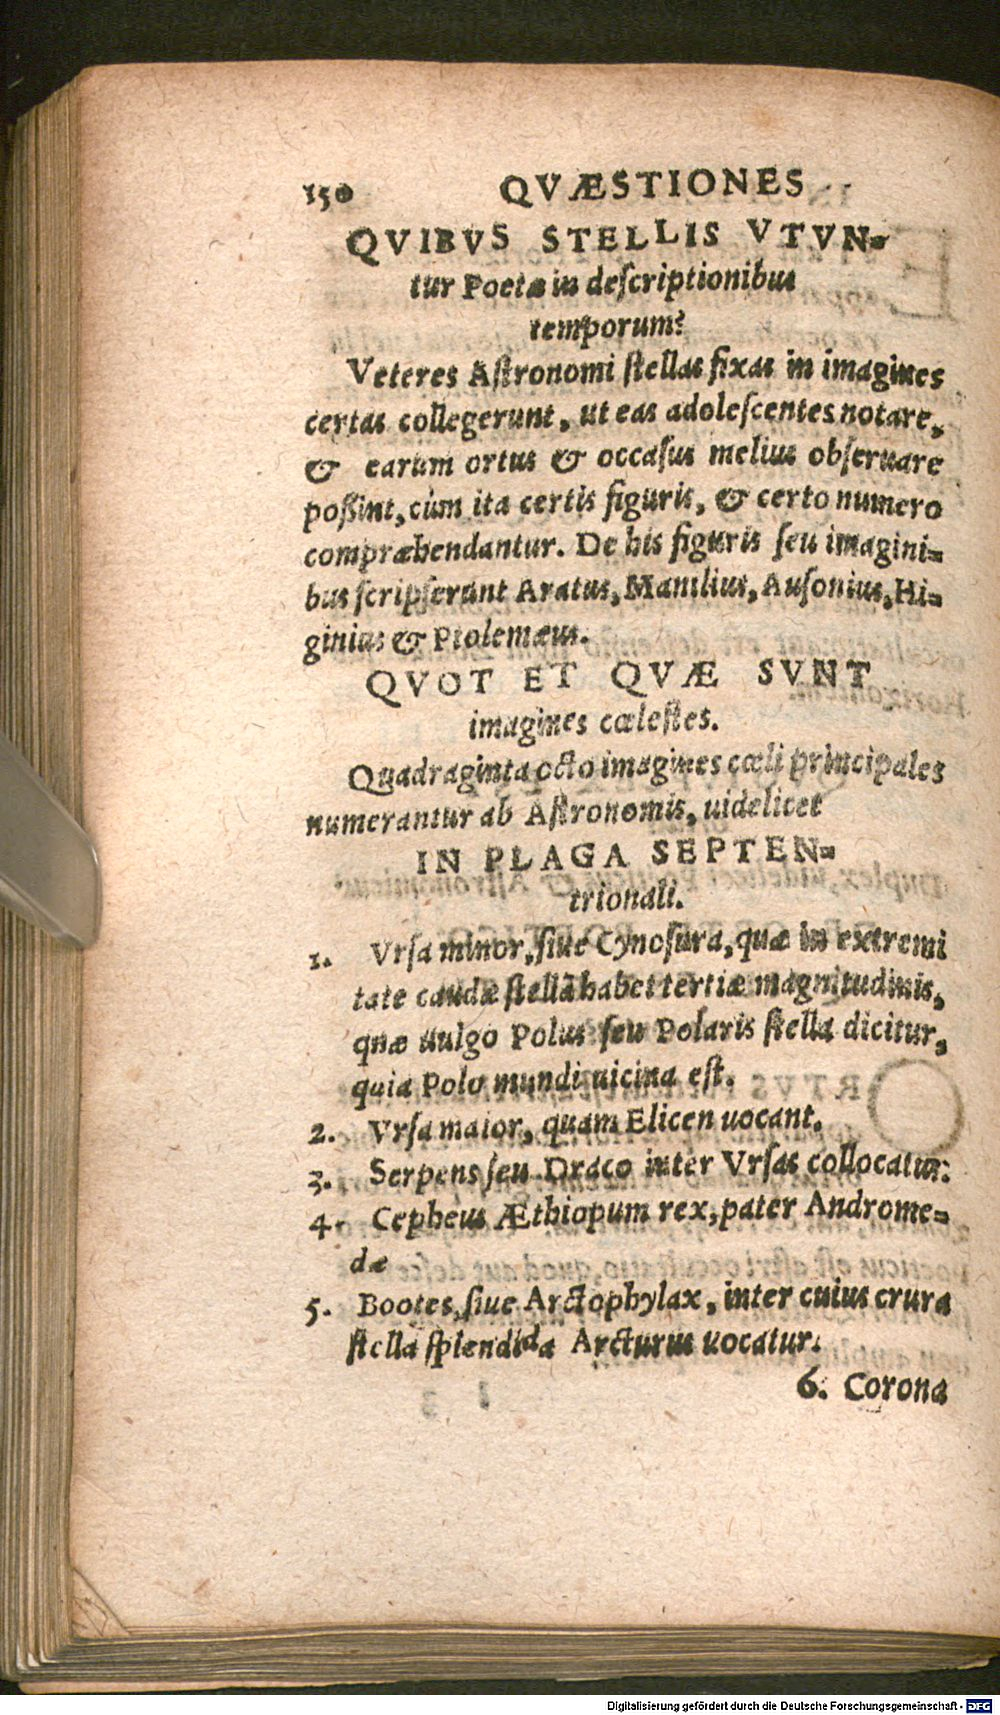 150 QVÆSTIONES
QVIBVS STELLIS VTVN=
tur Poetæ in deſcriptionibus
temporum?
Veteres Aſtronomi ſtellas fixas in imagines
certas collegerunt, ut eas adoleſcentes notare,
& earum ortus & occaſus melius obſeruare
poßint, cùm ita certis figuris, & certo numero
compræhendantur. De his figuris ſeu imagini=
bus ſcripſerunt Aratus, Manilius, Auſonius, Hi=
ginius & Ptolemæus.
QVOT ET QVÆ SVNT
imagines cœleſtes.
Quadraginta octo imagines cœli principales
numerantur ab Aſtronomis, uidelicet
IN PLAGA SEPTEN=
trionali.
1. Vrſa minor, ſiue Cynoſura, quæ in extremi
tate caudæ ſtellā habet tertiæ magnitudinis,
quæ uulgo Polus ſeu Polaris ſtella dicitur,
quia Polo mundi uicina eſt.
2. Vrſa maior, quam Elicen uocant.
3. Serpens ſeu Draco inter Vrſas collocatur:
4. Cepheus Æthiopum rex, pater Androme=
dæ
5. Bootes, ſiue Arctophylax, inter cuius crura
ſtella ſplendida Arcturus uocatur.
6. Corona
Digitalisierung gefördert durch die Deutsche Forschungsgemeinschaft - DFG